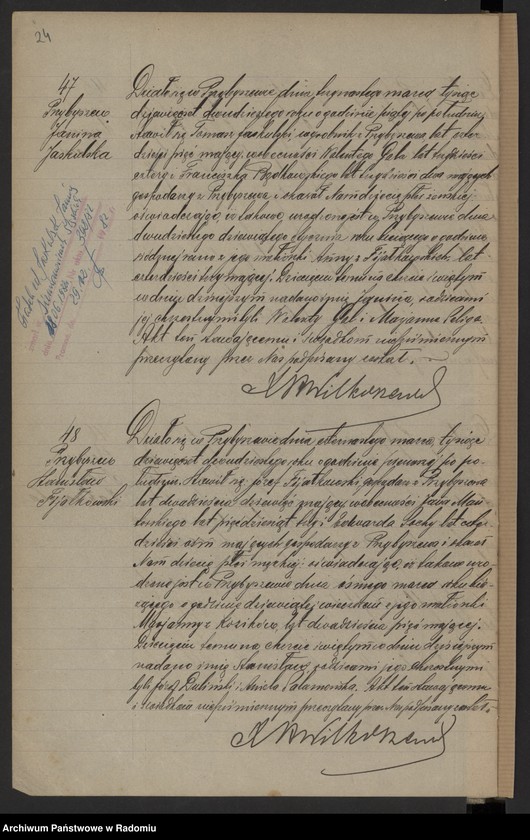 24
47
Przybyszew
Janina
Jaskulska
Działo się w Przybyszewie dnia trzynastego marca tysiąc
dziewięćset dwudziestego roku o godzinie piątej po południu
Stawił się Tomasz Jaskulski, wyrobnik z Przybyszewa lat czter-
dzieści pięć mający, w obecności Walentego Gala lat trzydzieści
cztery i Franciszka lat trzydzieści dwa mających
gospodarzy z Przybyszewa i okazał Nam dziecię płci żeńskiej
oświadczając, iż takowe urodzone jest w Przybyszewie dnia
dwudziestego dziewiątego stycznia roku bieżącego o godzinie
z jego małżonki Anny z Fijałkowskich, lat
czterdzieści mającej. Dziecięciu temu na chrzcie świętym
w dniu dzisiejszym nadano imię Janina, rodzicami
jej chrzestnymi byli Walenty Gal i Maryanna
Akt ten stawającemu i świadkom niepiśmiennym
przeczytany przez Nas podpisany został.
48
Przybyszew
Stanisław
Fijałkowski
Działo się w Przybyszewie dnia czternastego marca, tysiąc
dziewięćset dwudziestego roku o godzinie pierwszej po po-
łudniu. Stawił się Józef Fijałkowski, gospodarz z Przybyszewa
lat dwadzieścia dziewięć mający, w obecności Jana
lat pięćdziesiąt trzy i Edwarda Sochy lat czter-
dzieści osiem mających gospodarzy z Przybyszewa i okazał
Nam dziecię płci męskiej oświadczając, iż takowe uro-
dzone jest w Przybyszewie dnia ósmego marca roku bie-
żącego o godzinie dziewiątej wieczorem z jego małżonki
Maryanny z Kozików, lat dwadzieścia pięć mającej.
Dziecięciu temu na chrzcie świętym w dniu dzisiejszym
nadano imię Stanisław, rodzicami jego chrzestnymi
byli Józef i Aniela. Akt ten stawającemu
i świadkom niepiśmiennym przeczytany przez Nas podpisany został.
Archiwum Państwowe w Radomiu